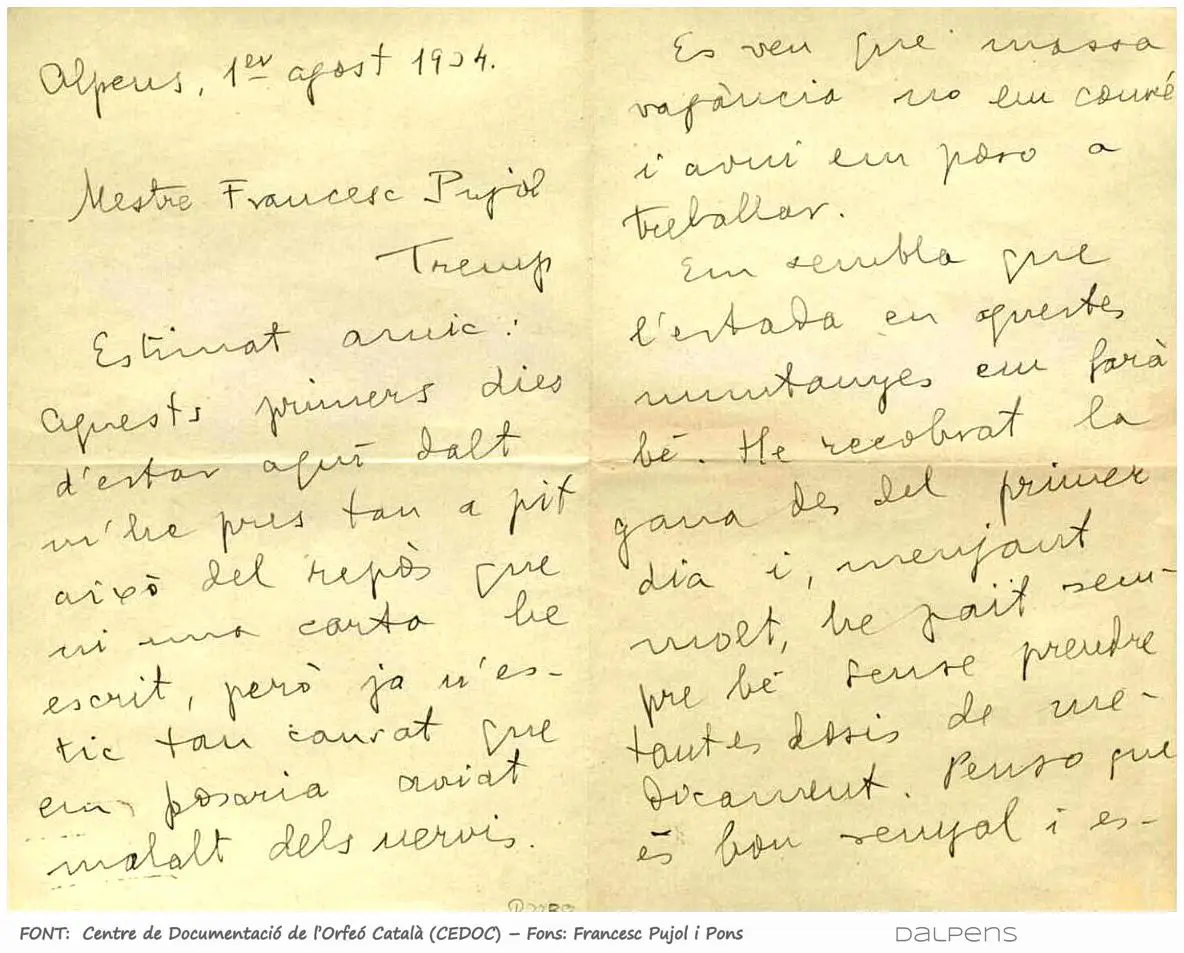 Alpens, 1er agost 1934.
Mestre Francesc Pujol
Tremp
Estimat amic:
Aquests primers dies
d'estar aquí dalt
m'he pres tan a pit
això del repòs que
ni una carta he
escrit, però ja n'es-
tic tan cansat que
em posaria aviat
malalt dels nervis.
Es veu que massa
vagància no em convé
i avui em poso a
treballar.
Em sembla que
l'estada en aquestes
muntanyes em farà
bé. He recobrat la
gana des del primer
dia i, menjant
molt, he paït sem-
pre bé sense prendre
tantes dosis de me-
dicament. Penso que
és bon senyal i es-
FONT: Centre de Documentació de l'Orfeó Català (CEDOC) – Fons: Francesc Pujol i Pons
DALPENS